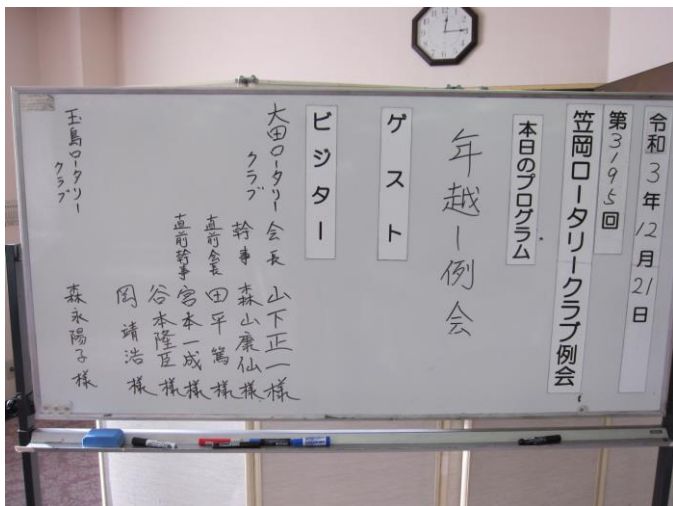 令和3年12月21日
第3195回
笠岡ロータリークラブ例会
本日のプログラム
年越し例会
ゲスト
ビジター
大田ロータリークラブ 会長 山下正一様
幹事 森山康仙様
直前会長 田平篤様
直前幹事 宮本一成様
谷本隆臣様
岡靖浩様
玉島ロータリークラブ 森永陽子様